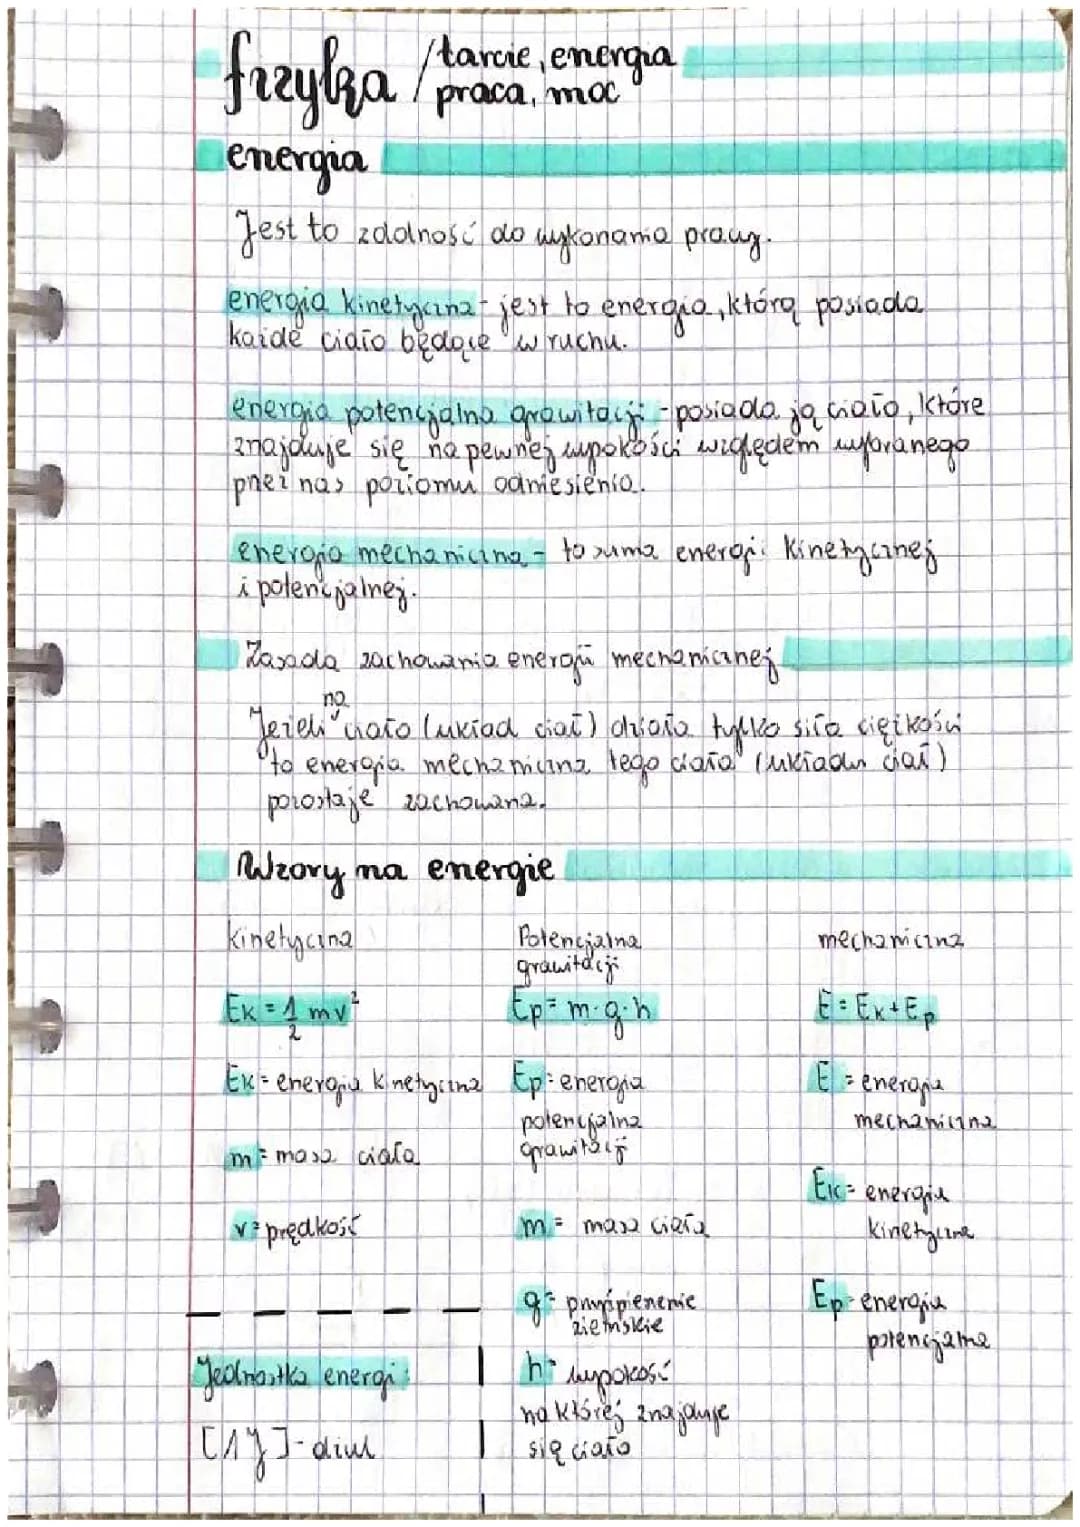 fizyka / tarcie, energia
praca, moc
energia
Jest to zdolność do wykonania pracy.
energia kinetyczna - jest to energia, którą posiada
każde ciało będące w ruchu.
energia potencjalna grawitacji - posiada ją ciało, które
znajduje się na pewnej wysokości względem wybranego
przez nas poziomu odniesienia.
energia mechaniczna - to suma energii kinetycznej
i potencjalnej.
Zasada zachowania energii mechanicznej
Jeżeli na ciało (układ ciał) działa tylko siła ciężkości
to energia mechaniczna tego ciała (układu ciał)
pozostaje zachowana.
Wzory na energie
kinetyczna
Potencjalna
grawitacji
mechaniczna
Ek = 1/2 mv²
Ep = m·g·h
E = Ek + Ep
Ek = energia kinetyczna
m = masa ciała
v = prędkość
Ep = energia
potencjalna
grawitacji
m = masa ciała
g = przyśpieszenie
ziemskie
h = wysokość
na której znajduje
się ciało
E = energia
mechaniczna
Ek = energia
kinetyczna
Ep = energia
potencjalna
Jednostka energi:
[1J] - dżul